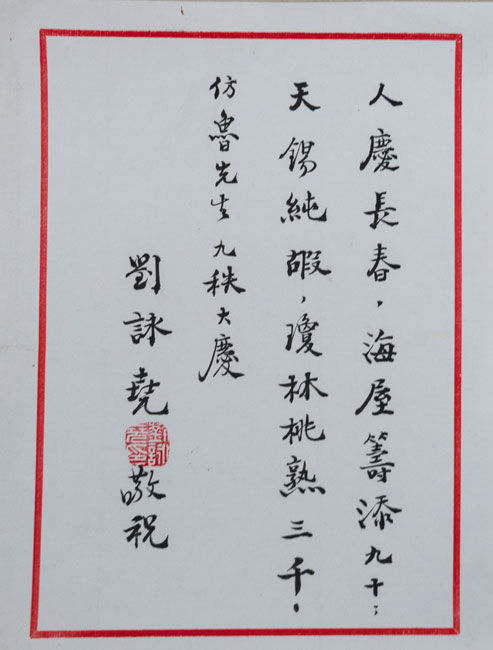 人慶長春，海屋籌添九十；
天錫純嘏，瓊林桃熟三千。
仿魯先生九秩大慶
劉詠堯敬祝
劉詠堯印